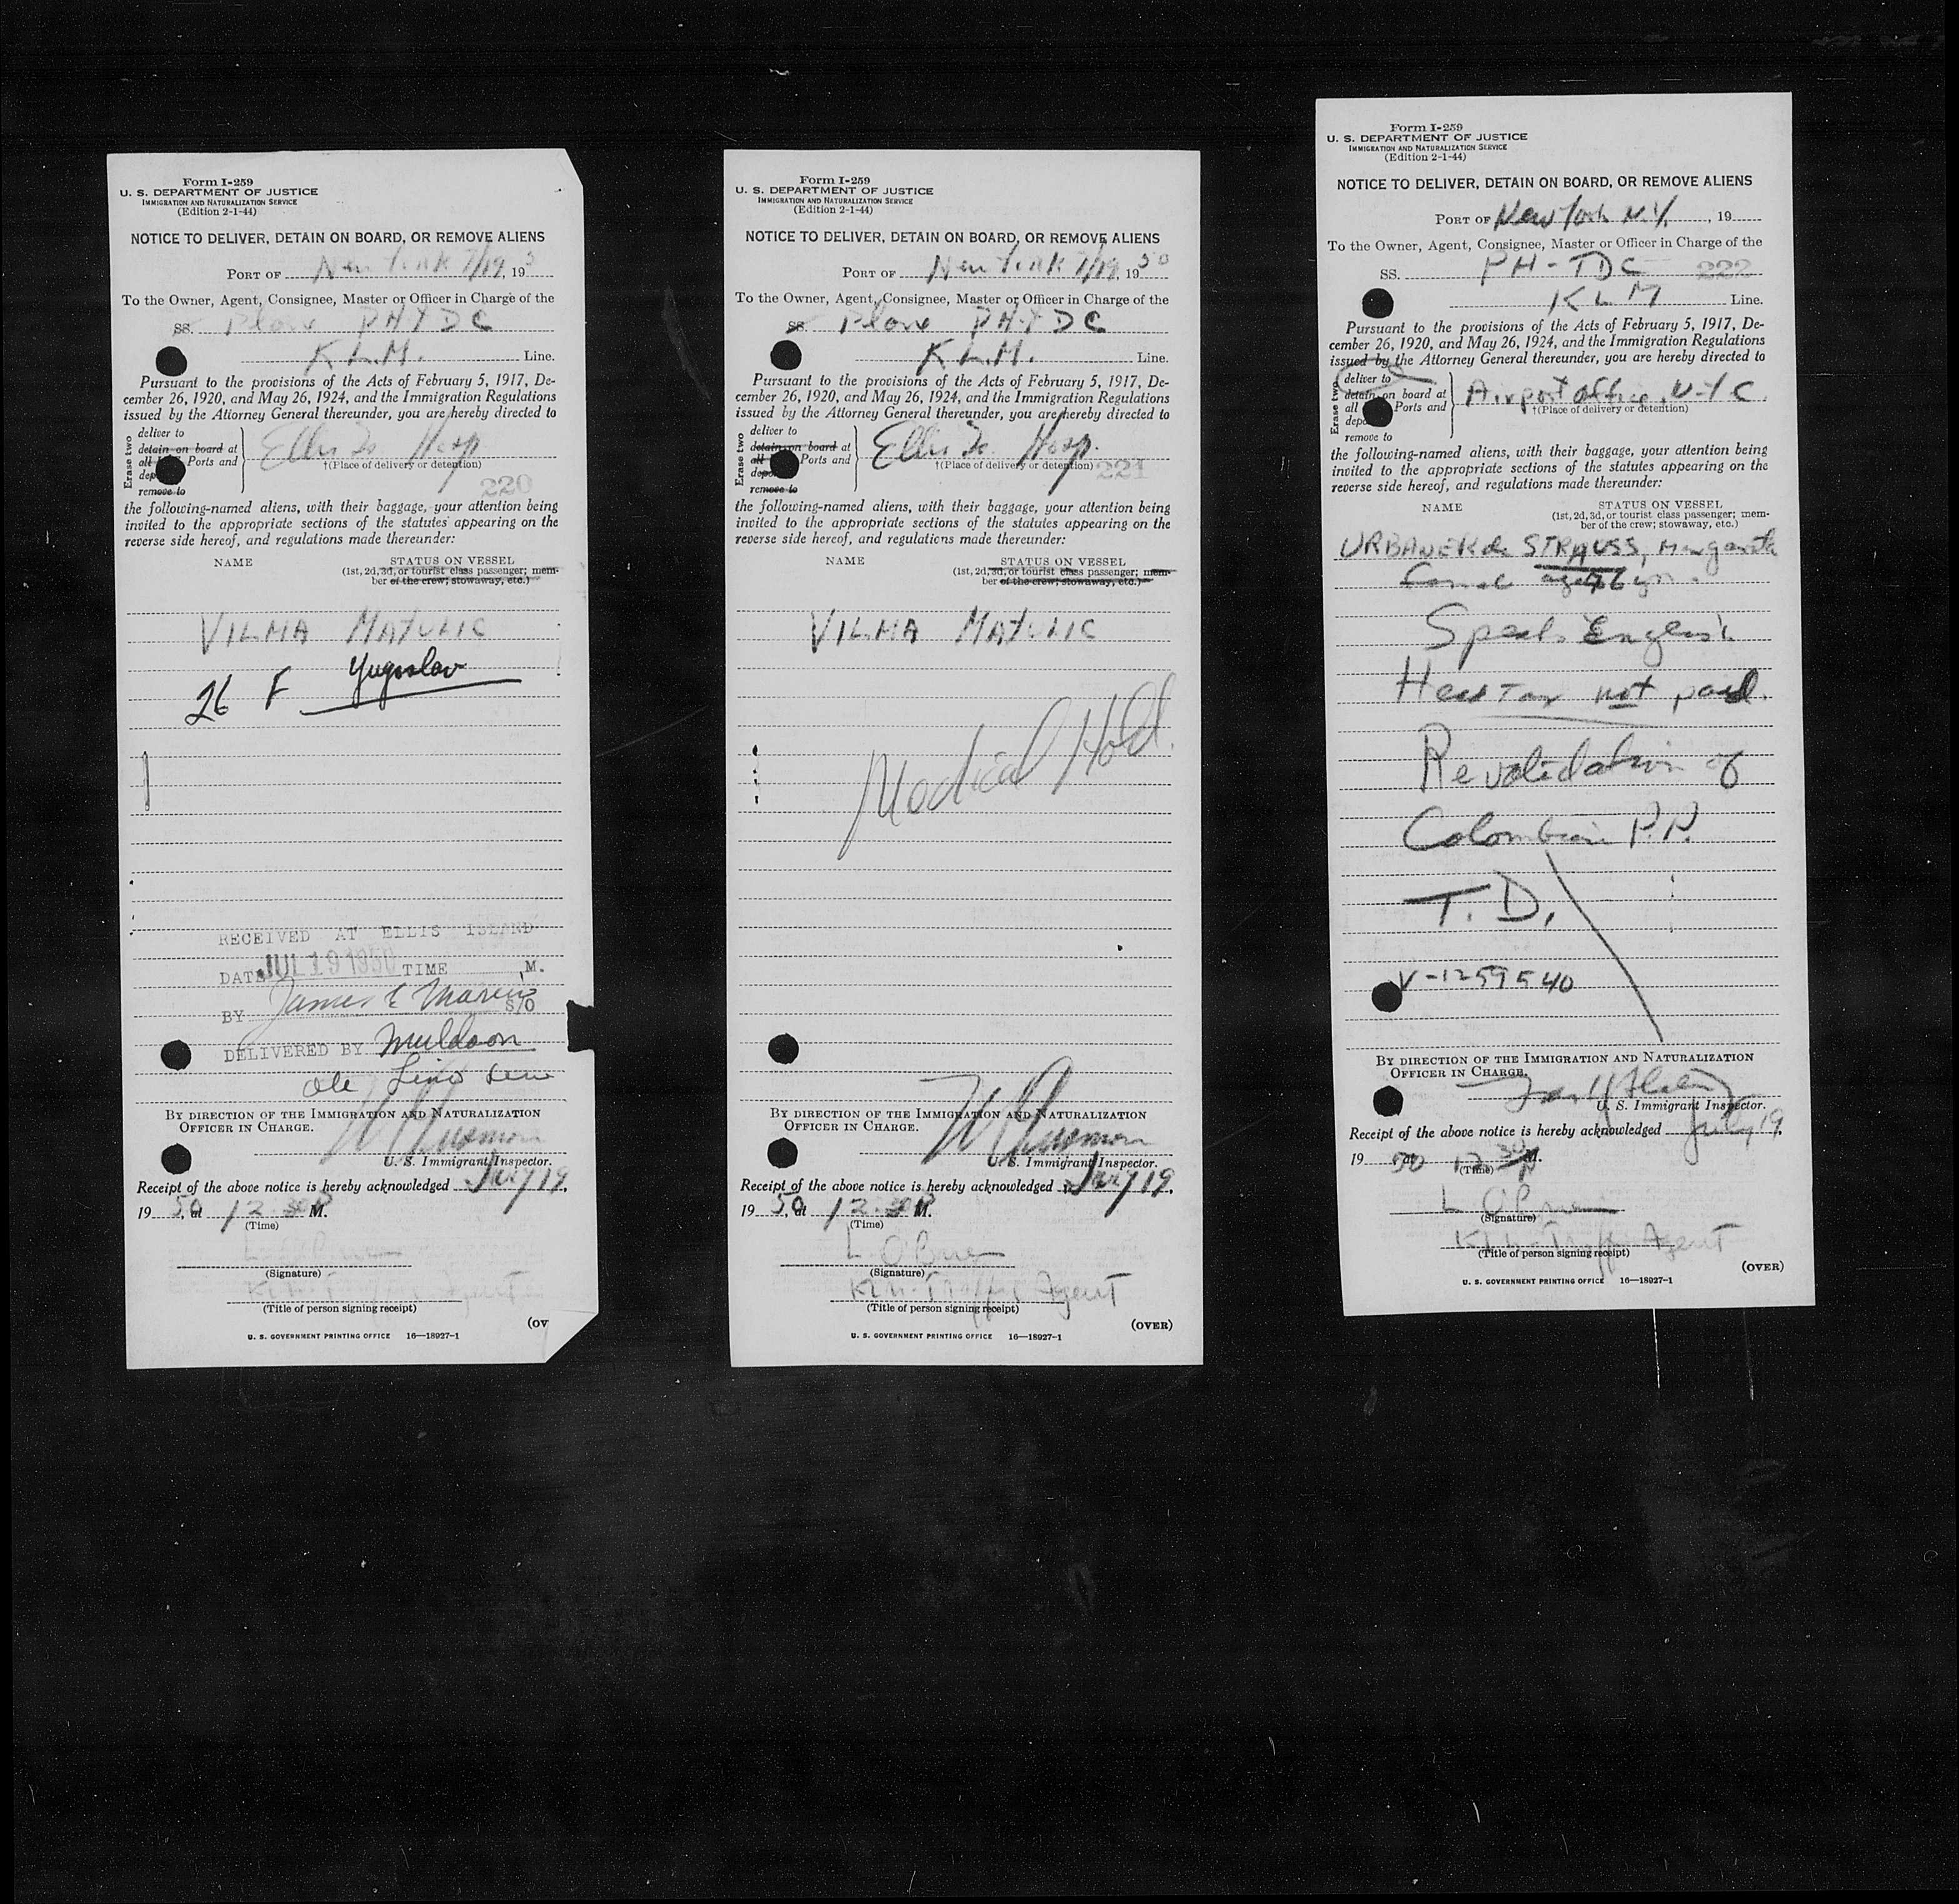 Form I-259
U. S. DEPARTMENT OF JUSTICE
IMMIGRATION AND NATURALIZATION SERVICE
(Edition 2-1-44)
NOTICE TO DELIVER, DETAIN ON BOARD, OR REMOVE ALIENS
PORT OF New York 7/19, 195
To the Owner, Agent, Consignee, Master or Officer in Charge of the
SS. Plane PHTDC
K.L.M. Line.
Pursuant to the provisions of the Acts of February 5, 1917, De-
cember 26, 1920, and May 26, 1924, and the Immigration Regulations
issued by the Attorney General thereunder, you are hereby directed to
Erase two
deliver to
detain on board at
all Ports and
remove to
Ellis Is. Hosp.
†(Place of delivery or detention)
220
the following-named aliens, with their baggage, your attention being
invited to the appropriate sections of the statutes appearing on the
reverse side hereof, and regulations made thereunder:
NAME STATUS ON VESSEL
(1st, 2d, 3d, or tourist class passenger; mem-
ber of the crew; stowaway, etc.)
VILMA MATULIC
26 F Yugoslav
RECEIVED AT ELLIS ISLAND
DATE JUL 19 1950 TIME M.
BY James E S/O
DELIVERED BY Muldoon
BY DIRECTION OF THE IMMIGRATION AND NATURALIZATION
OFFICER IN CHARGE.
U. S. Immigrant Inspector.
Receipt of the above notice is hereby acknowledged July 19,
1950, at 12:30 P M.
(Time)
L. O'Brien
(Signature)
KLM-Traffic Agent
(Title of person signing receipt)
(OV
U. S. GOVERNMENT PRINTING OFFICE 16—18927-1
Form I-259
U. S. DEPARTMENT OF JUSTICE
IMMIGRATION AND NATURALIZATION SERVICE
(Edition 2-1-44)
NOTICE TO DELIVER, DETAIN ON BOARD, OR REMOVE ALIENS
PORT OF New York 7/19, 1950
To the Owner, Agent, Consignee, Master or Officer in Charge of the
SS. Plane PHTDC
K.L.M. Line.
Pursuant to the provisions of the Acts of February 5, 1917, De-
cember 26, 1920, and May 26, 1924, and the Immigration Regulations
issued by the Attorney General thereunder, you are hereby directed to
Erase two
deliver to
detain on board at
all Ports and
remove to
Ellis Is. Hosp.
†(Place of delivery or detention)
221
the following-named aliens, with their baggage, your attention being
invited to the appropriate sections of the statutes appearing on the
reverse side hereof, and regulations made thereunder:
NAME STATUS ON VESSEL
(1st, 2d, 3d, or tourist class passenger; mem-
ber of the crew; stowaway, etc.)
VILMA MATULIC
Medical Hold.
BY DIRECTION OF THE IMMIGRATION AND NATURALIZATION
OFFICER IN CHARGE.
U. S. Immigrant Inspector.
Receipt of the above notice is hereby acknowledged July 19,
1950, at 12:30 P M.
(Time)
L. O'Brien
(Signature)
KLM-Traffic Agent
(Title of person signing receipt)
(OVER)
U. S. GOVERNMENT PRINTING OFFICE 16—18927-1
Form I-259
U. S. DEPARTMENT OF JUSTICE
IMMIGRATION AND NATURALIZATION SERVICE
(Edition 2-1-44)
NOTICE TO DELIVER, DETAIN ON BOARD, OR REMOVE ALIENS
PORT OF New York N.Y., 19
To the Owner, Agent, Consignee, Master or Officer in Charge of the
SS. PH-TDC 222
KLM Line.
Pursuant to the provisions of the Acts of February 5, 1917, De-
cember 26, 1920, and May 26, 1924, and the Immigration Regulations
issued by the Attorney General thereunder, you are hereby directed to
Erase two
deliver to
detain on board at
all Ports and
remove to
Airport office, N.Y.C.
†(Place of delivery or detention)
the following-named aliens, with their baggage, your attention being
invited to the appropriate sections of the statutes appearing on the
reverse side hereof, and regulations made thereunder:
NAME STATUS ON VESSEL
(1st, 2d, 3d, or tourist class passenger; mem-
ber of the crew; stowaway, etc.)
URBANEK de STRAUSS, Margareth
Female age 46 yrs.
Speaks English
Head Tax not paid.
Revalidation of
Colombian P.P.
T.D.
V-1259540
BY DIRECTION OF THE IMMIGRATION AND NATURALIZATION
OFFICER IN CHARGE.
U. S. Immigrant Inspector.
Receipt of the above notice is hereby acknowledged July 19,
1950 at 12:30 P M.
(Time)
L O'Brien
(Signature)
KLM-Traffic Agent
(Title of person signing receipt)
(OVER)
U. S. GOVERNMENT PRINTING OFFICE 16—18927-1